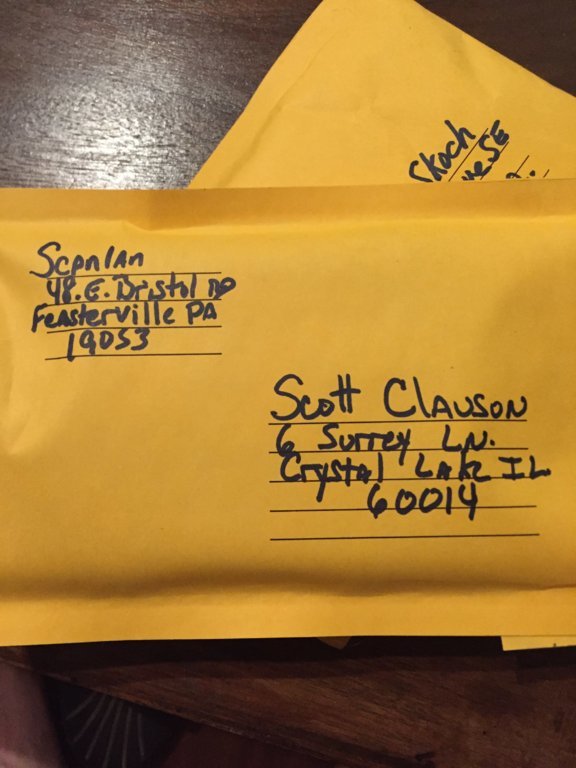 Skoch
SE
Scanlan
48 E. Bristol RD
Feasterville PA
19053
Scott Clauson
6 Surrey LN.
Crystal Lake IL
60014